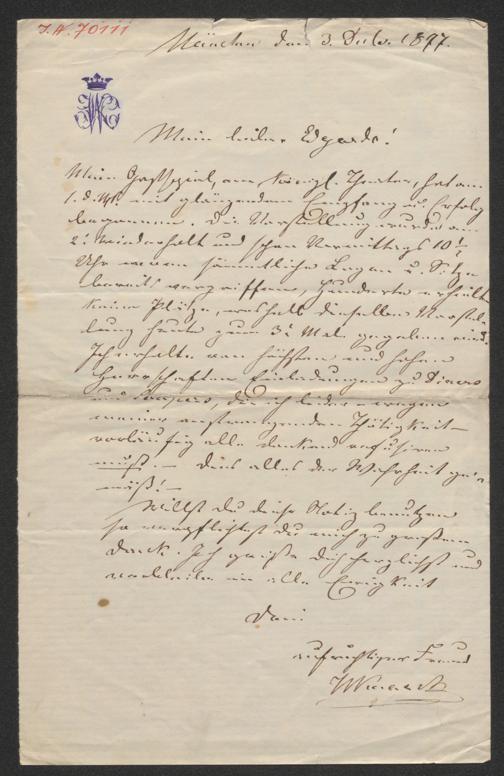 I.N. 70111
München den 3. Dcbr. 1897.
Mein lieber Edgardo!
Mein Gastspiel, am Königl. Theater, hat am
1. d. Mt. mit glänzendem Empfang u. Erfolg
begonnen. Die Vorstellung wurde am
2t wiederholt und schon Vormittags 10 1/2
Uhr waren sämmtliche Logen u. Sitze
bereits vergriffen, Hunderte erhielten
keine Plätze, weshalb dieselbe Vorstel-
lung heute zum 3t Male gegeben wird.
Ich erhalte von höchsten und hohen
Herrschaften Einladungen zu Diners
und Soupers, die ich leider wegen
meiner anstrengenden Thätigkeit
vorläufig alle dankend refusiren
muß. – Dies alles der Wahrheit ge-
mäß! –
Willst Du diese Notiz benutzen
so verpflichtest Du mich zu großem
Dank. Ich grüße Dich herzlichst und
verbleibe in alle Ewigkeit
Dein
aufrichtiger Freund